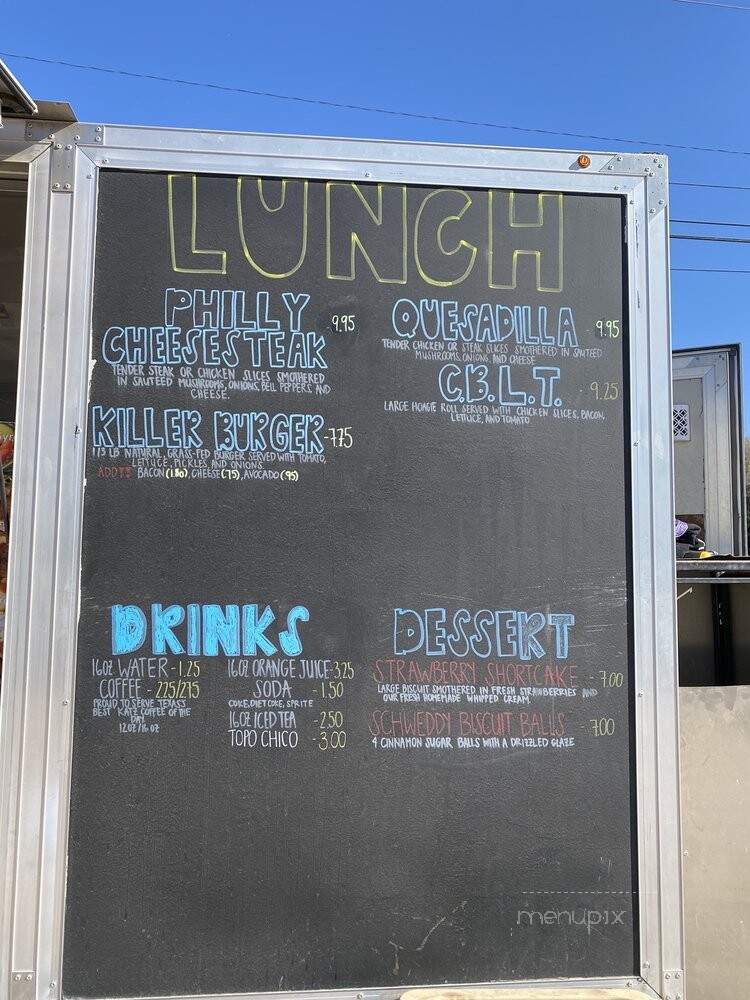 LUNCH
PHILLY
CHEESESTEAK -9.95
TENDER STEAK OR CHICKEN SLICES SMOTHERED
IN SAUTEED MUSHROOMS, ONIONS, BELL PEPPERS, AND
CHEESE.
KILLER BURGER -7.75
1/3 LB NATURAL, GRASS-FED BURGER SERVED WITH TOMATO,
LETTUCE, PICKLES, AND ONIONS.
ADD!! BACON (1.80), CHEESE (.75), AVOCADO (.95)
QUESADILLA - 9.95
TENDER CHICKEN OR STEAK SLICES SMOTHERED IN SAUTEED
MUSHROOMS, ONIONS, AND CHEESE
C.B.L.T. - 9.25
LARGE HOAGIE ROLL SERVED WITH CHICKEN SLICES, BACON,
LETTUCE, AND TOMATO
DRINKS
16OZ WATER -1.25
COFFEE - 2.25/2.75
PROUD TO SERVE TEXAS'S
BEST KATZ COFFEE OF THE
DAY
12OZ/16OZ
16OZ ORANGE JUICE -3.25
SODA -1.50
COKE, DIET COKE, SPRITE
16OZ ICED TEA -2.50
TOPO CHICO -3.00
DESSERT
STRAWBERRY SHORTCAKE - 7.00
LARGE BISCUIT SMOTHERED IN FRESH STRAWBERRIES AND
OUR FRESH HOMEMADE WHIPPED CREAM.
SCHWEDDY BISCUIT BALLS - 7.00
4 CINNAMON SUGAR BALLS WITH A DRIZZLED GLAZE
menupix